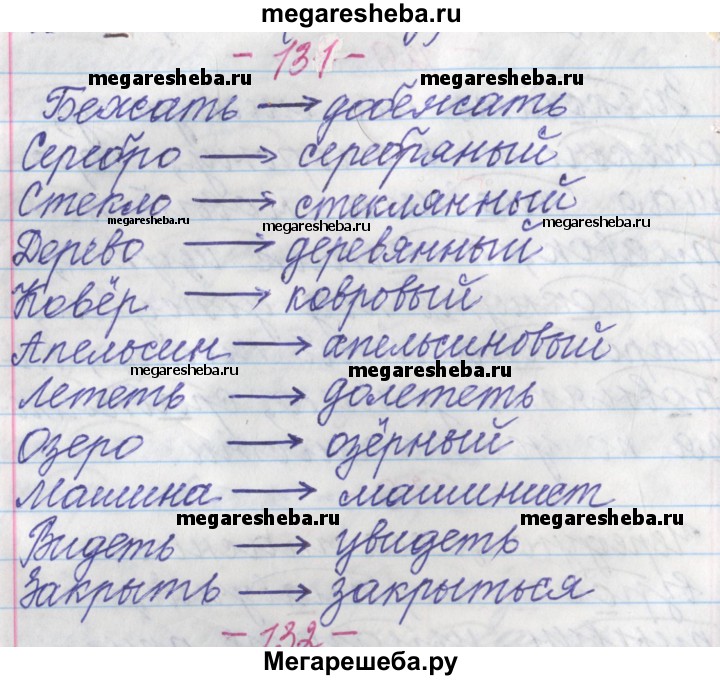 megaresheba.ru
- 131 -
megaresheba.ru megaresheba.ru
Бежать → добежать
Серебро → серебряный
Стекло → стеклянный
megaresheba.ru megaresheba.ru megaresheba.ru
Дерево → деревянный
Ковёр → ковровый
Апельсин → апельсиновый
megaresheba.ru megaresheba.ru
Лететь → долететь
Озеро → озёрный
Машина → машинист
megaresheba.ru megaresheba.ru
Видеть → увидеть
Закрыть → закрыться
- 132 -
Мегарешеба.ру